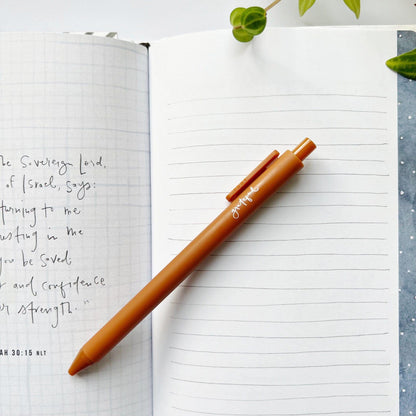 he Sovereign Lord,
of Israel, says:
turning to me
esting in me
you be saved
and confidence
r strength."
AH 30:15 NLT
grateful